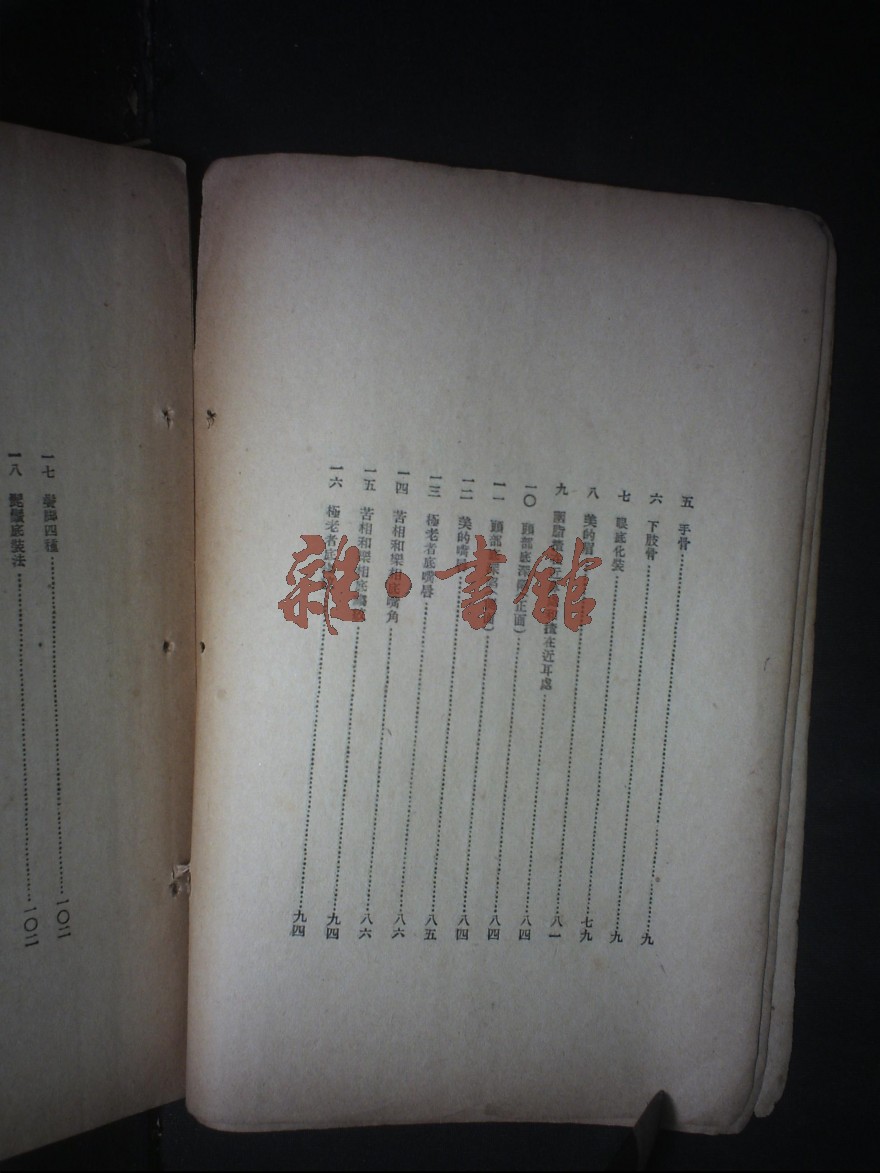 五 手骨…………九
六 下肢骨…………九
七 眼底化裝…………七九
八 美的眉…………八一
九 胭脂…………在近耳處…………八四
一〇 頸部底深…(正面)…………八四
一一 頸部…………八四
一二 美的嘴…………八五
一三 極老者底嘴唇…………八六
一四 苦相和樂相底嘴角…………八六
一五 苦相和樂相底…………九四
一六 極老者底…………九四
一七 脚四種…………一〇二
一八 底裝法…………一〇二
雜·書館